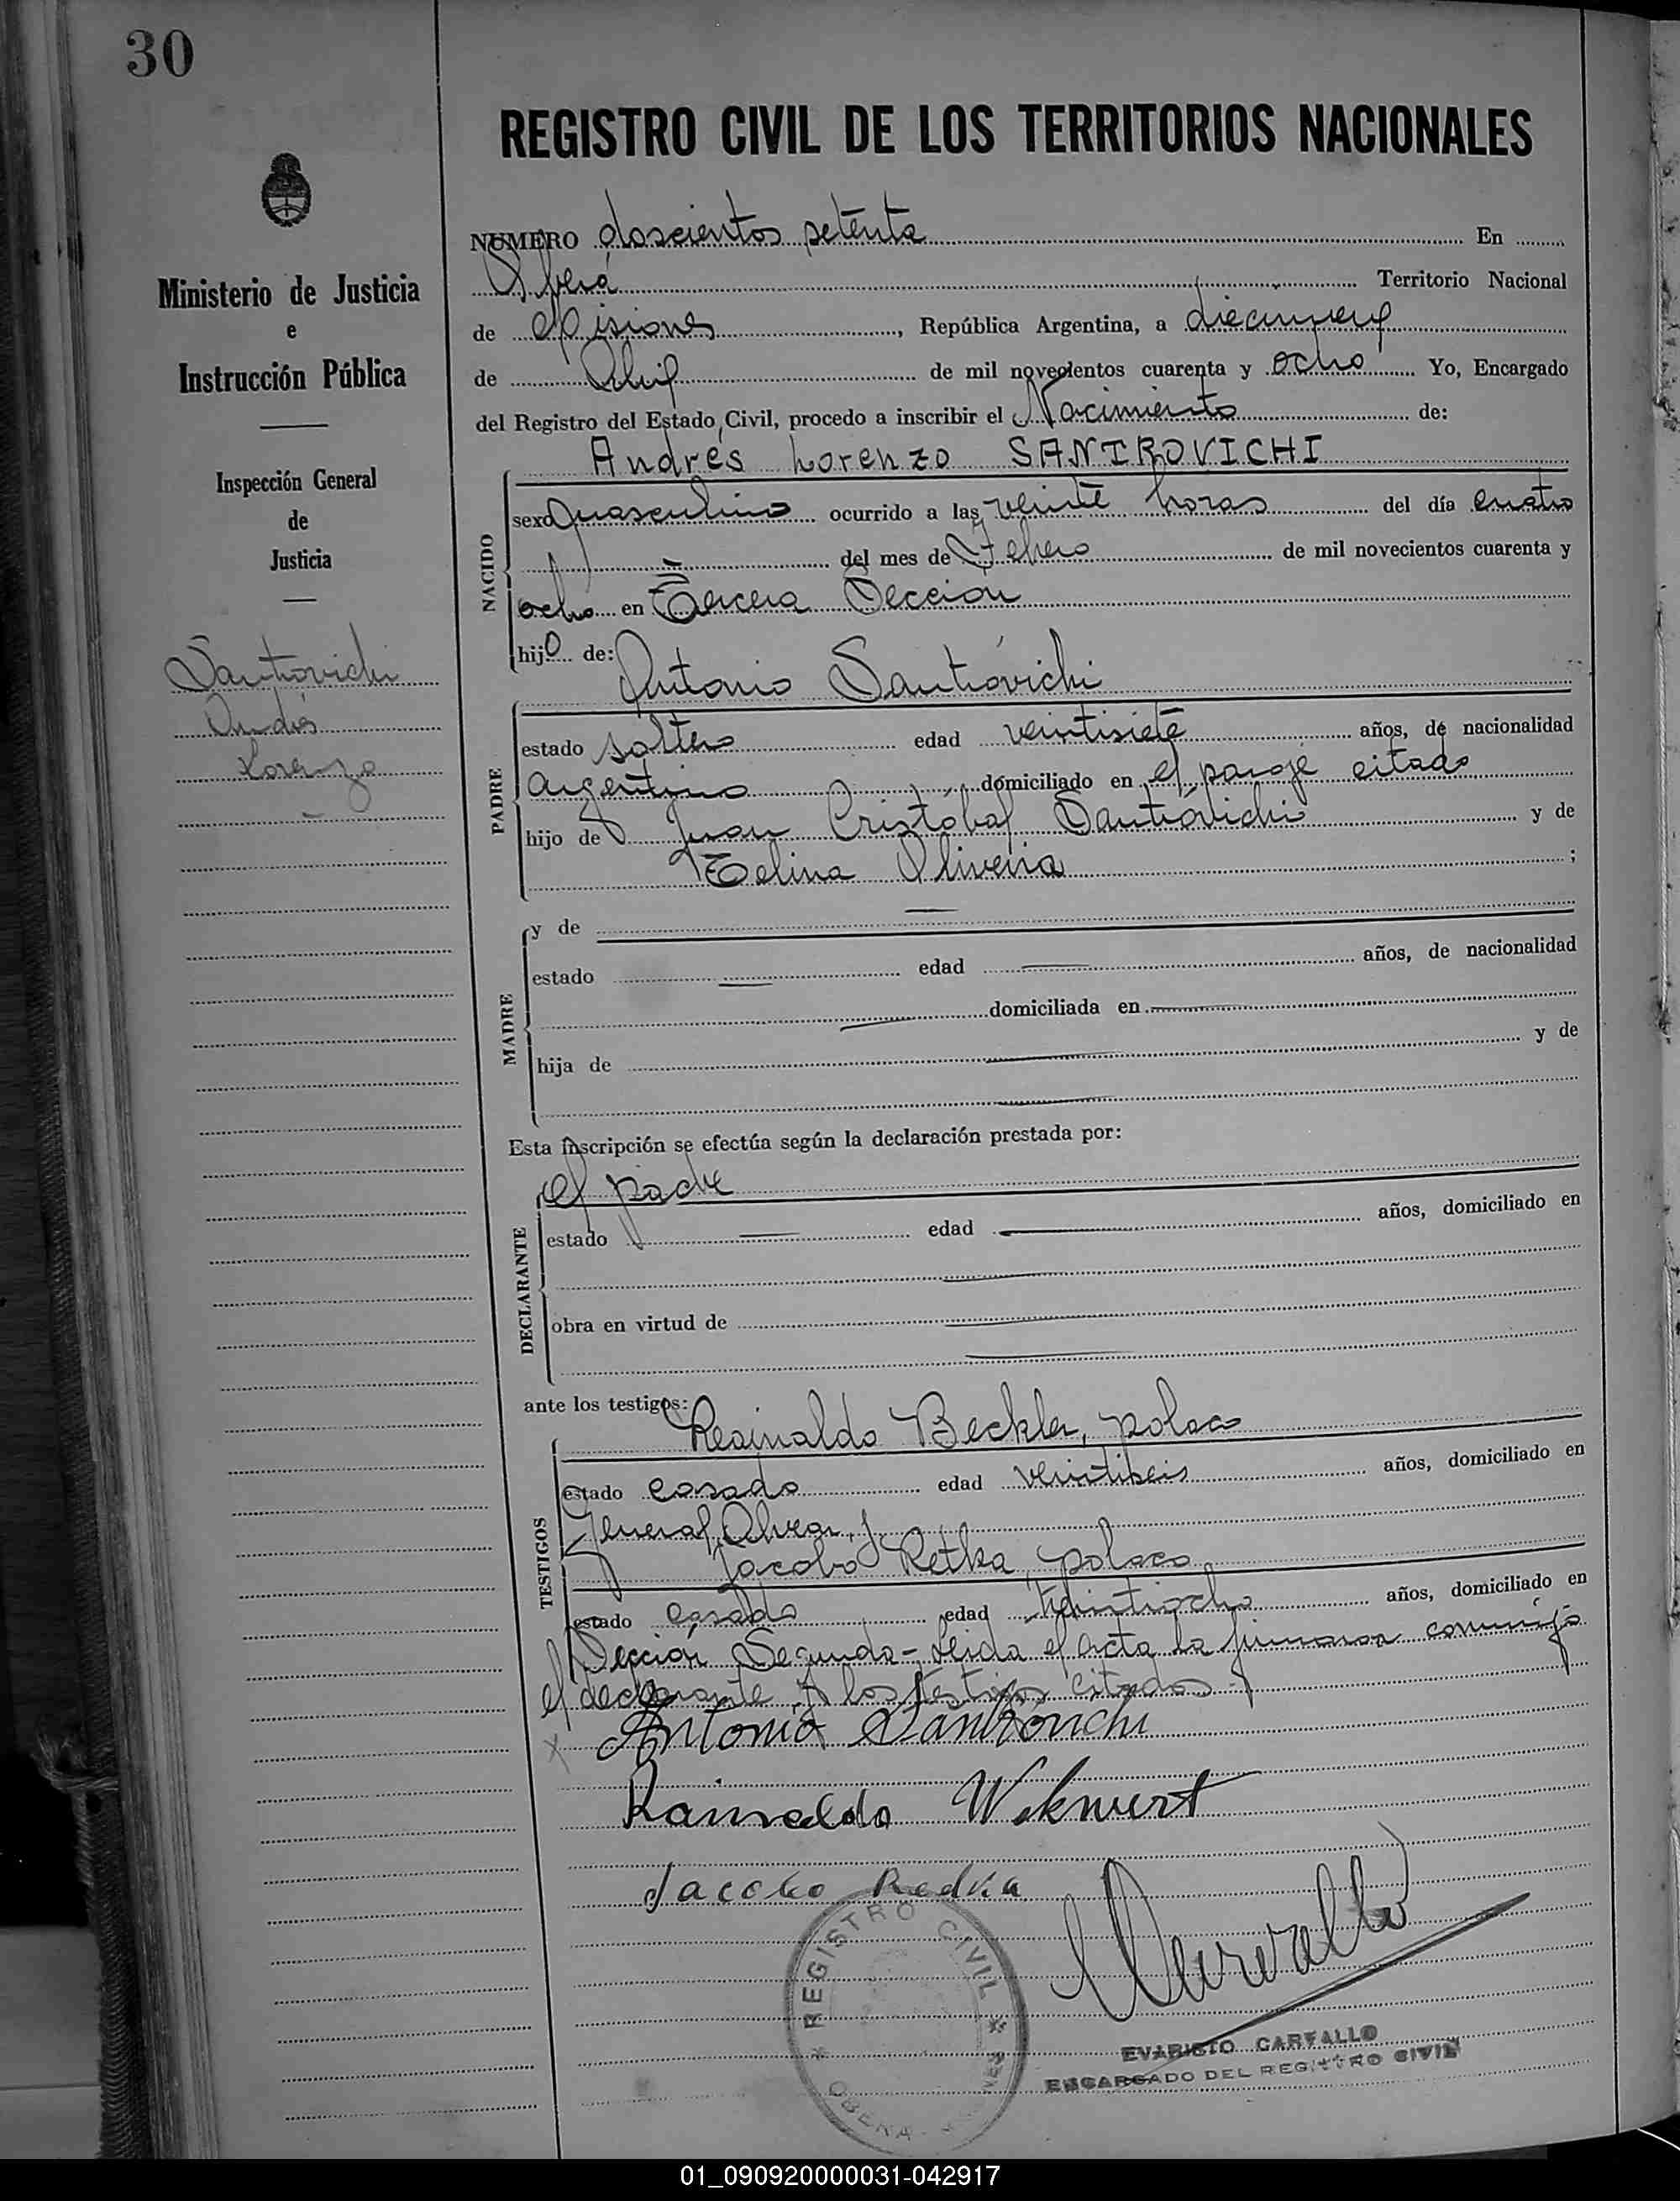 30
REGISTRO CIVIL DE LOS TERRITORIOS NACIONALES
Ministerio de Justicia
e
Instrucción Pública
Inspección General
de
Justicia
Santrovichi
Andrés
Lorenzo
NUMERO doscientos setenta En
Oberá Territorio Nacional
de Misiones, República Argentina, a diecinueve
de Abril de mil novecientos cuarenta y ocho Yo, Encargado
del Registro del Estado Civil, procedo a inscribir el Nacimiento de:
Andrés Lorenzo SANTROVICHI
NACIDO
sexo masculino ocurrido a las veinte horas del día cuatro
del mes de Febrero de mil novecientos cuarenta y
ocho en Tercera Sección
hijo de:
Antonio Santróvichi
PADRE
estado soltero edad veintisiete años, de nacionalidad
Argentino domiciliado en el paraje citado
hijo de Juan Cristóbal Santróvichi y de
Celina Oliveira ;
MADRE
y de
estado edad años, de nacionalidad
domiciliada en
hija de y de
Esta inscripción se efectúa según la declaración prestada por:
el padre
DECLARANTE
estado edad años, domiciliado en
obra en virtud de
ante los testigos:
Reinaldo Beckler, polaco
TESTIGOS
estado casado edad veintiseis años, domiciliado en
General Alvear, y
Jacobo Retka, polaco
estado casado edad años, domiciliado en
Sección Segunda - Leida el acta la firmaron conmigo
el declarante y los testigos citados.
x Antonio Santrovichi
Rainaldo
Jacobo Redka
Carvallo
REGISTRO CIVIL
OBERA
EVARISTO CARVALLO
ENCARGADO DEL REGISTRO CIVIL
01_090920000031-042917